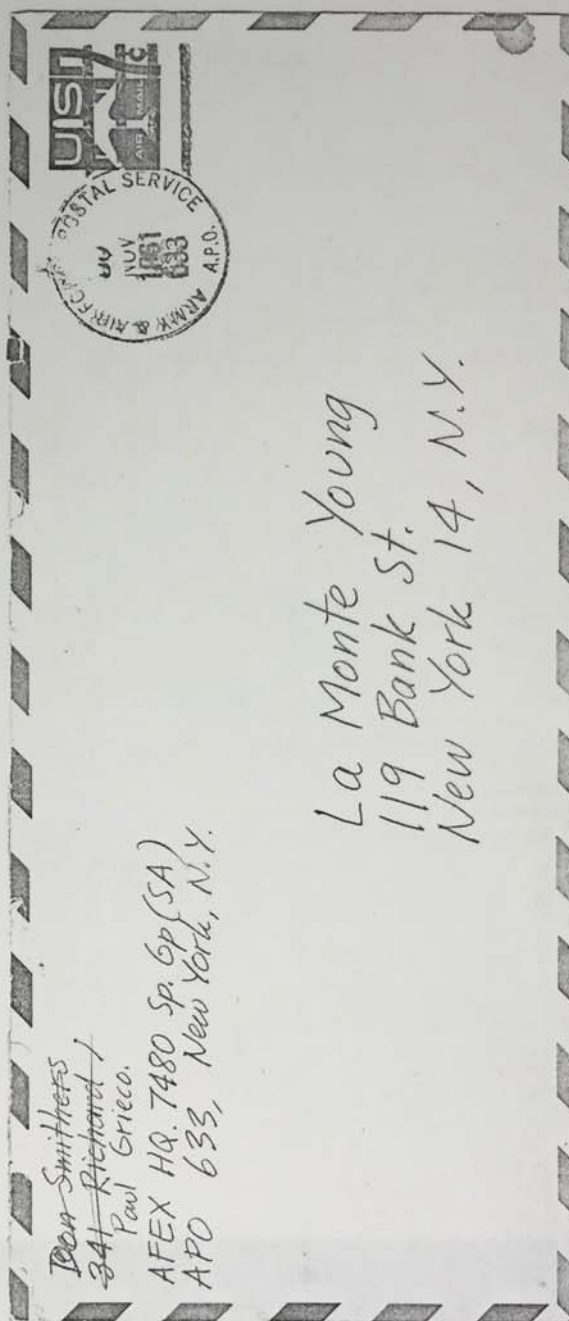 ~~Don Smithers~~
~~341 Richard~~
Paul Grieco.
AFEX HQ. 7480 Sp. Gp (SA)
APO 633, New York, N.Y.
US
AIR MAIL
ARMY & AIR FORCE POSTAL SERVICE
NOV
1961
633
A.P.O.
La Monte Young
119 Bank St.
New York 14, N.Y.